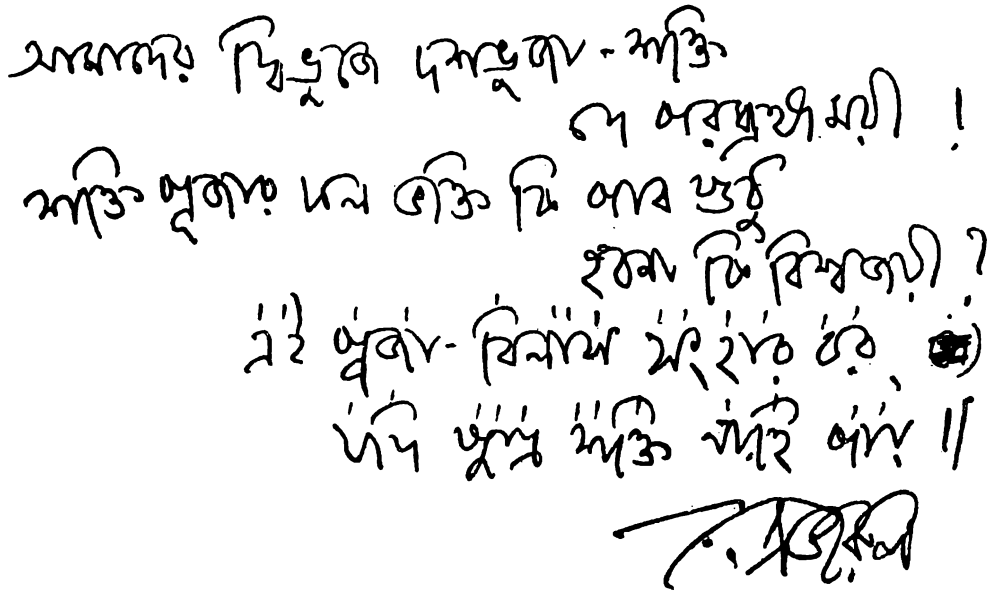 আমাদের দ্বিভুজে দশভুজা-শক্তি
দে পরব্রহ্মময়ী !
শক্তি পূজার ফল ভক্তি কি পাব শুধু
হবনা কি বিশ্বজয়ী ?
এই পূজা-বিলাস সংহার কর
যদি পুত্র শক্তি নাহি পায় ॥